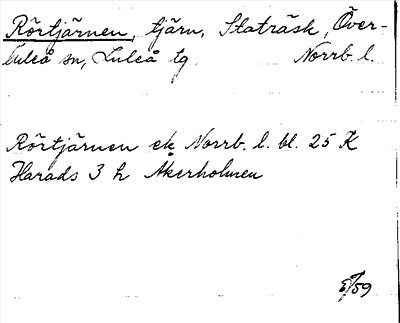 Rörtjärnen, tjärn, Staträsk, Över-
luleå sn, Luleå tg Norrb. l.
Rörtjärnen ek. Norrb. l. bl. 25 K
Harads 3 h Åkerholmen
E/59